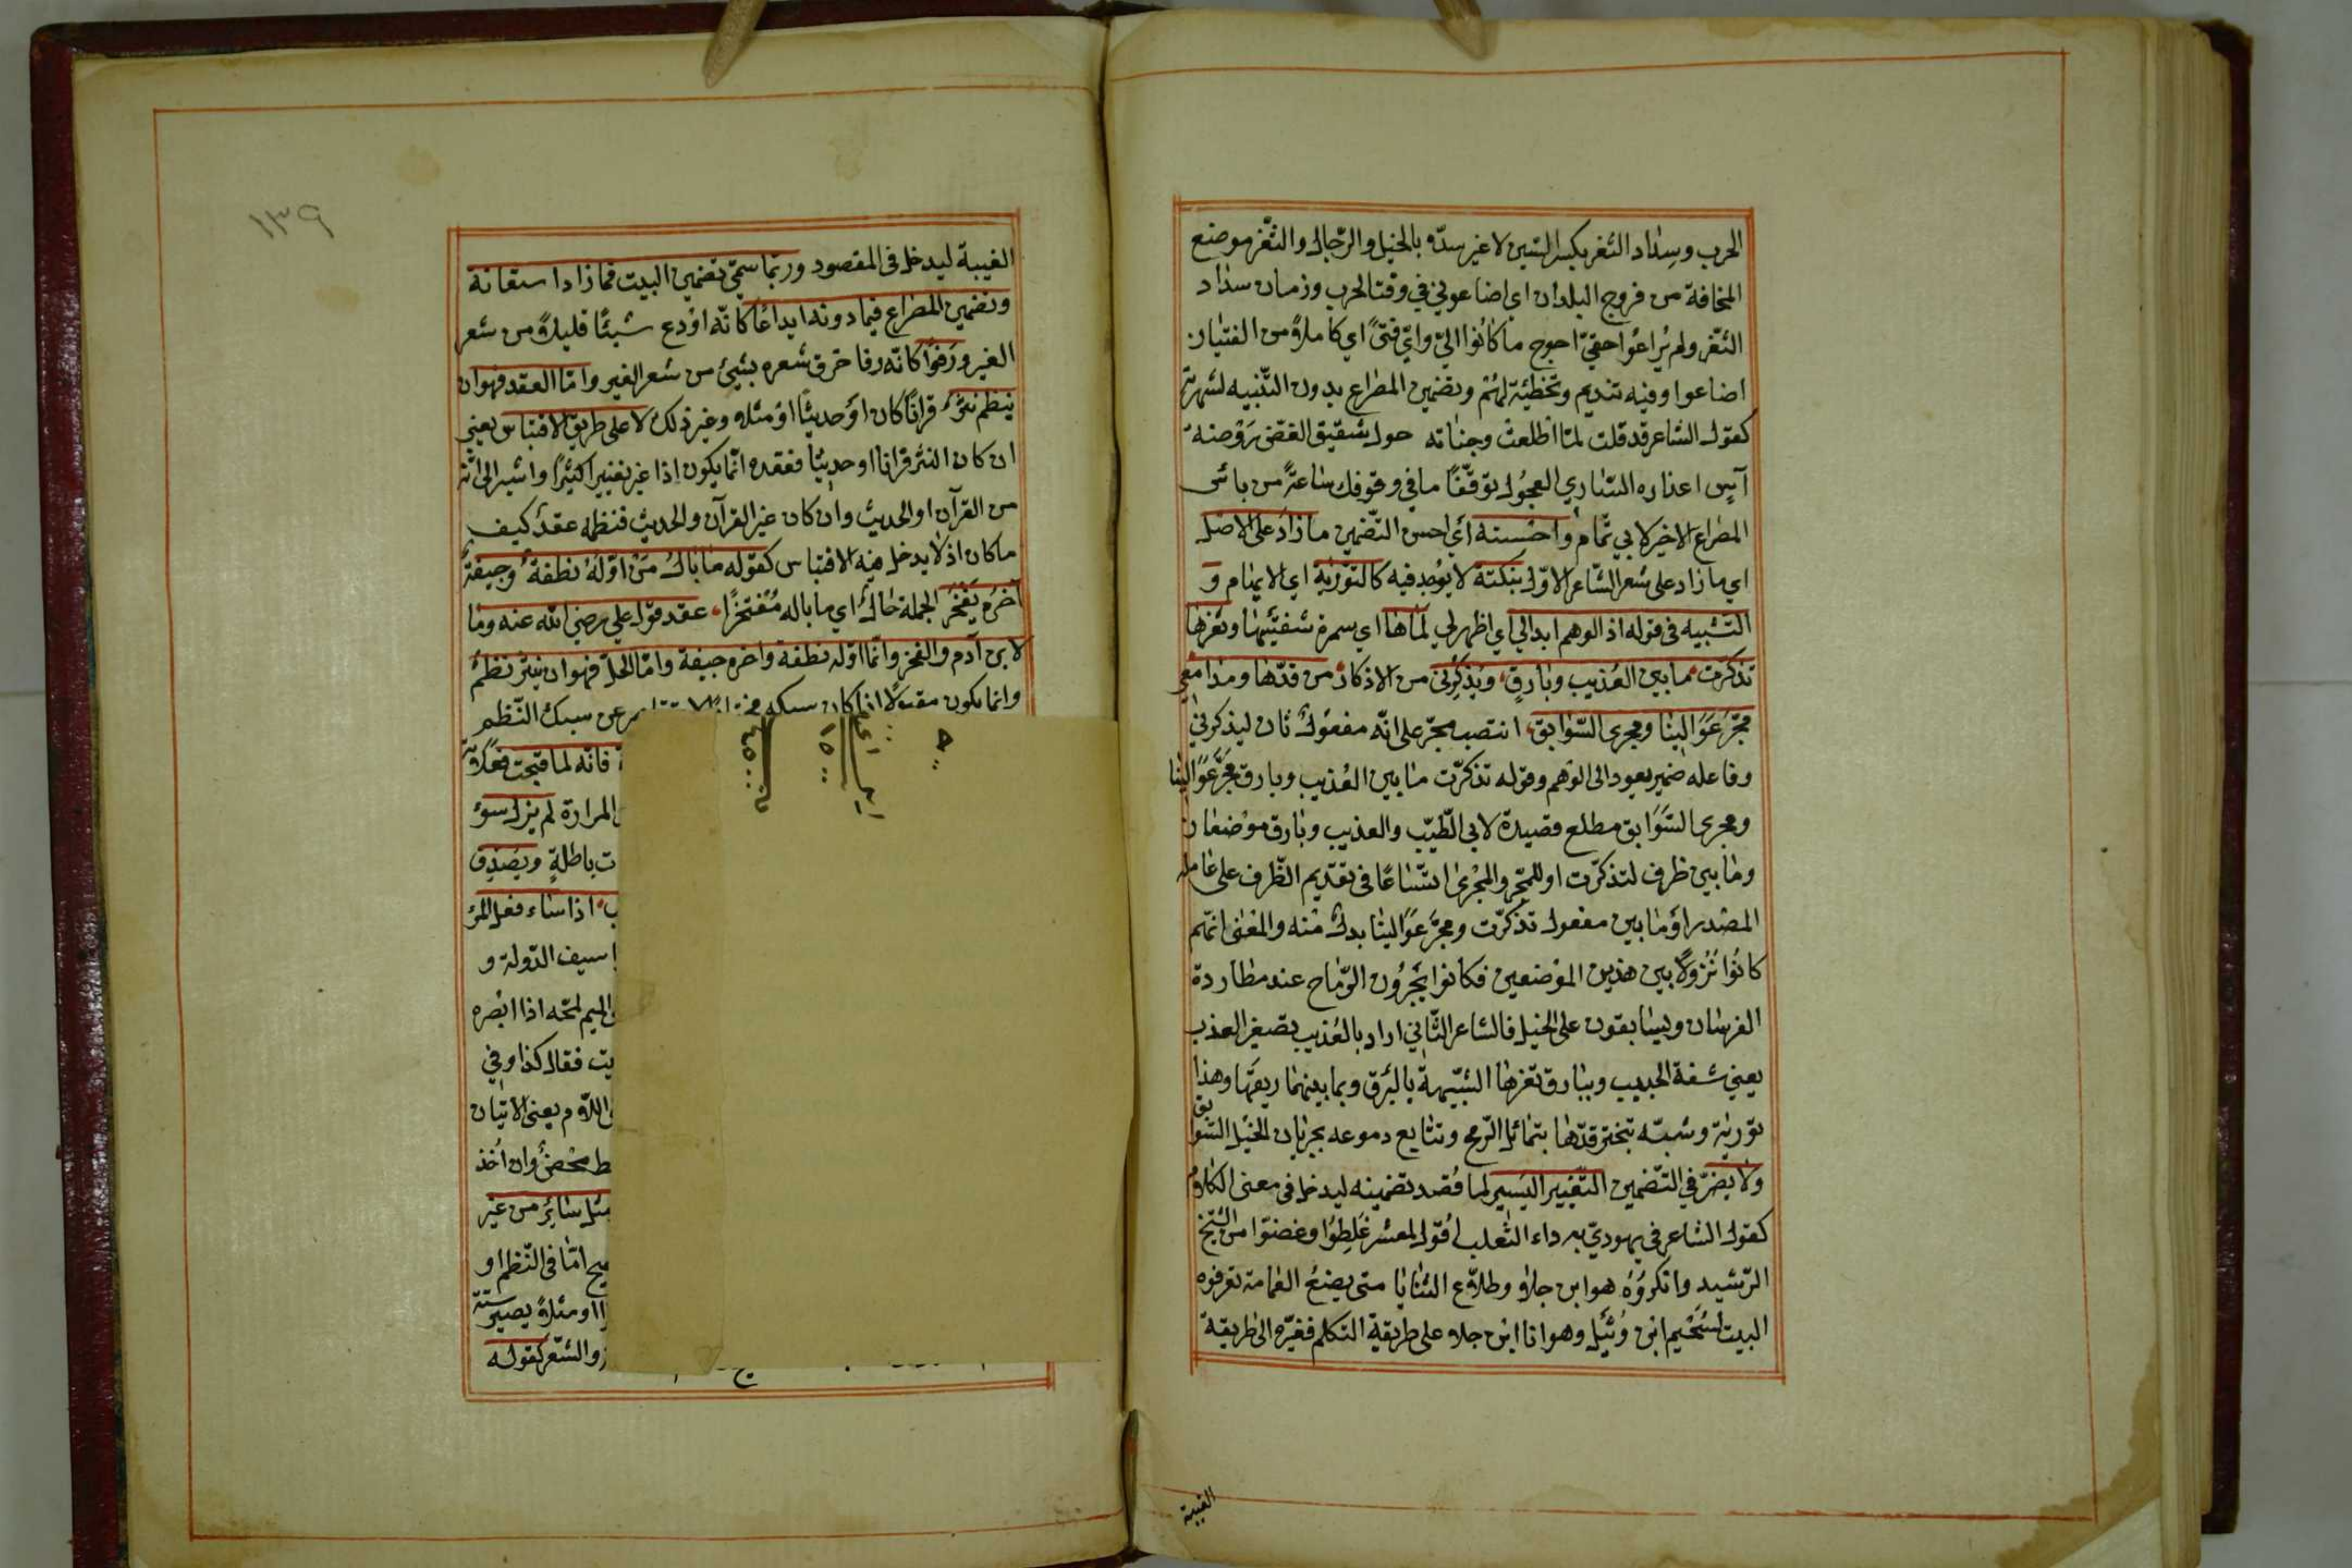 الحرب وسِداد الثغر بكسر السّين لا غير سدّه بالخيل والرّجال والثّغر موضع
المخافة من فروج البلدان اي اضاعوني في وقت الحرب وزمان سداد
الثّغر ولم يُراعُوا حقيّ احوج ما كانُوا اليّ وايّ فتىً اي كاملاً من الفتيان
اضاعوا وفيه تنديم وتخطئة لهُمْ وتضمين المصراع بدون التّنبيه لشهرته
كقول الشاعر قد قلت لمّا اطلعت وجناته حول شقيق الغضّ رَوْضة
آسٍ اعذاره السّاري العجُول توقّفًا ما في وقوفك ساعةً من باس
المصراع الاخير لابي تمّام واحسنه اي احسن التّضمين ما زاد على الاصل
اي ما زاد على شعر الشّاعر الاوّل بنكتة لا يوُجد فيه كالتّورية اي الايهام و
التشبيه في قوله اذ الوهم ابدا لي اي اظهر لي لَماها اي سمرة شفتيها وثغرها
تذكّرت ما بين العُذيب وبارقٍ ويذكّرني من الاذكار من قدّها ومدامعي
مجرّ عَوَالينا ومجرى السّوابق انتصب مجرّ على انّه مفعول ثان ليذكرني
وفاعله ضمير يعود الى الوَهم وقوله تذكرّت ما بين العُذيب وبارق مجَرّ عَوَالينا
ومجرى السَّوَابق مطلع قصيدة لابي الطّيّب والعذيب وبارق موضعان
وما بين ظرف لتذكرّت او للمجَرّ والمجْرى اتّساعًا في تقدّيم الظّرف على عامله
المصْدر اؤ ما بين مفعول تذكرّت ومجَرَّ عَوَالينا بدل منه والمعْنى انهّم
كانُوا نُزولاً بين هذين الموْضعين فكانوا يَجرُّون الرّماح عند مطاردة
الفرسان ويسابقون على الخيل فالشاعر الثّاني اراد بالعُذيب تصغير العذب
يعني شفة الحبيب وببارق ثغرها الشّبيهة بالبَرق وبما بينهما ريقها وهذا
توّرية وشبّه تبختر قدّها بتمائل الرّمح وتتابع دموعه بجريان الخيْل السّوابق
ولا يضرّ في التّضمين التّغيير اليسير لما قُصد تضمينه ليدخل في معنى الكلام
كقول الشاعر في يهوديّ به داء الثّعلب اقول لمعشر غَلِطُوا وغضوّا من الشّيخ
الرّشيد وانكرُوُه هو ابن جلا وطلاّع الثنايا متى يضع العمامة تعرفوه
البيت لسُحَيم ابن وُثَيْل وهو انا ابن جلا على طريقة التكلم فغيّره الى طريقة
الغيبة
١٣٩
الغيبة ليدخل في المقصود وربّما سمّي تضمين البيت فما زاد استعانة
وتضمين المصراع فيما دونه ايداعًا كانّه اوْدع شيئًا قليلاً من شعر
الغير ورَفوًا كانّه رفا خرق شعره بشيئ من شعر الغير وامّا العقد فهو ان
ينظم نثر قرانًا كان اؤ حديثًا اوْ مثله وغير ذلك لا على طريق الاقتباس يعني
ان كان النثر قرانا او حديثًا فعقده انّما يكون اذا غير تغييرا كثيًرا واشير الى انّه
من القرآن او الحديث وان كان غير القرآن والحديث فنظمه عقدٌ كيف
ما كان اذ لا يدخل فيه الاقتباس كقوله ما بالُ مَنْ اوّلهُ نطفةٌ وجيفةٌ
آخرُه يَفْخرُ الجملة حالٌ اي ما باله مُفتخرًا عقد قول علي رضي الله عنه وما
لابن آدم والفخر وانّما اوّله نطفة واخره جيفة وامّا الحلّ فهو ان ينثر نظمٌ
وانما يكون مقبولاً اذا كان سبكه عن سبك النّظم
فانّه لما قبحت فعلاته
المرارة لم يزل سوُء
ت باطلةٍ ويصَدِّق
اذا ساء فعل المرْ
سيف الدّولة و
الميم لمحّه اذا ابْصره
يت فقال كذا وفي
اللّام يعني الاتيان
محْضٌ وان اُخذ
مثل سائر من غير
امّا في النّظم او
او مثلاً يصير ستّة
والشّعر كقوله
١٥٠٠